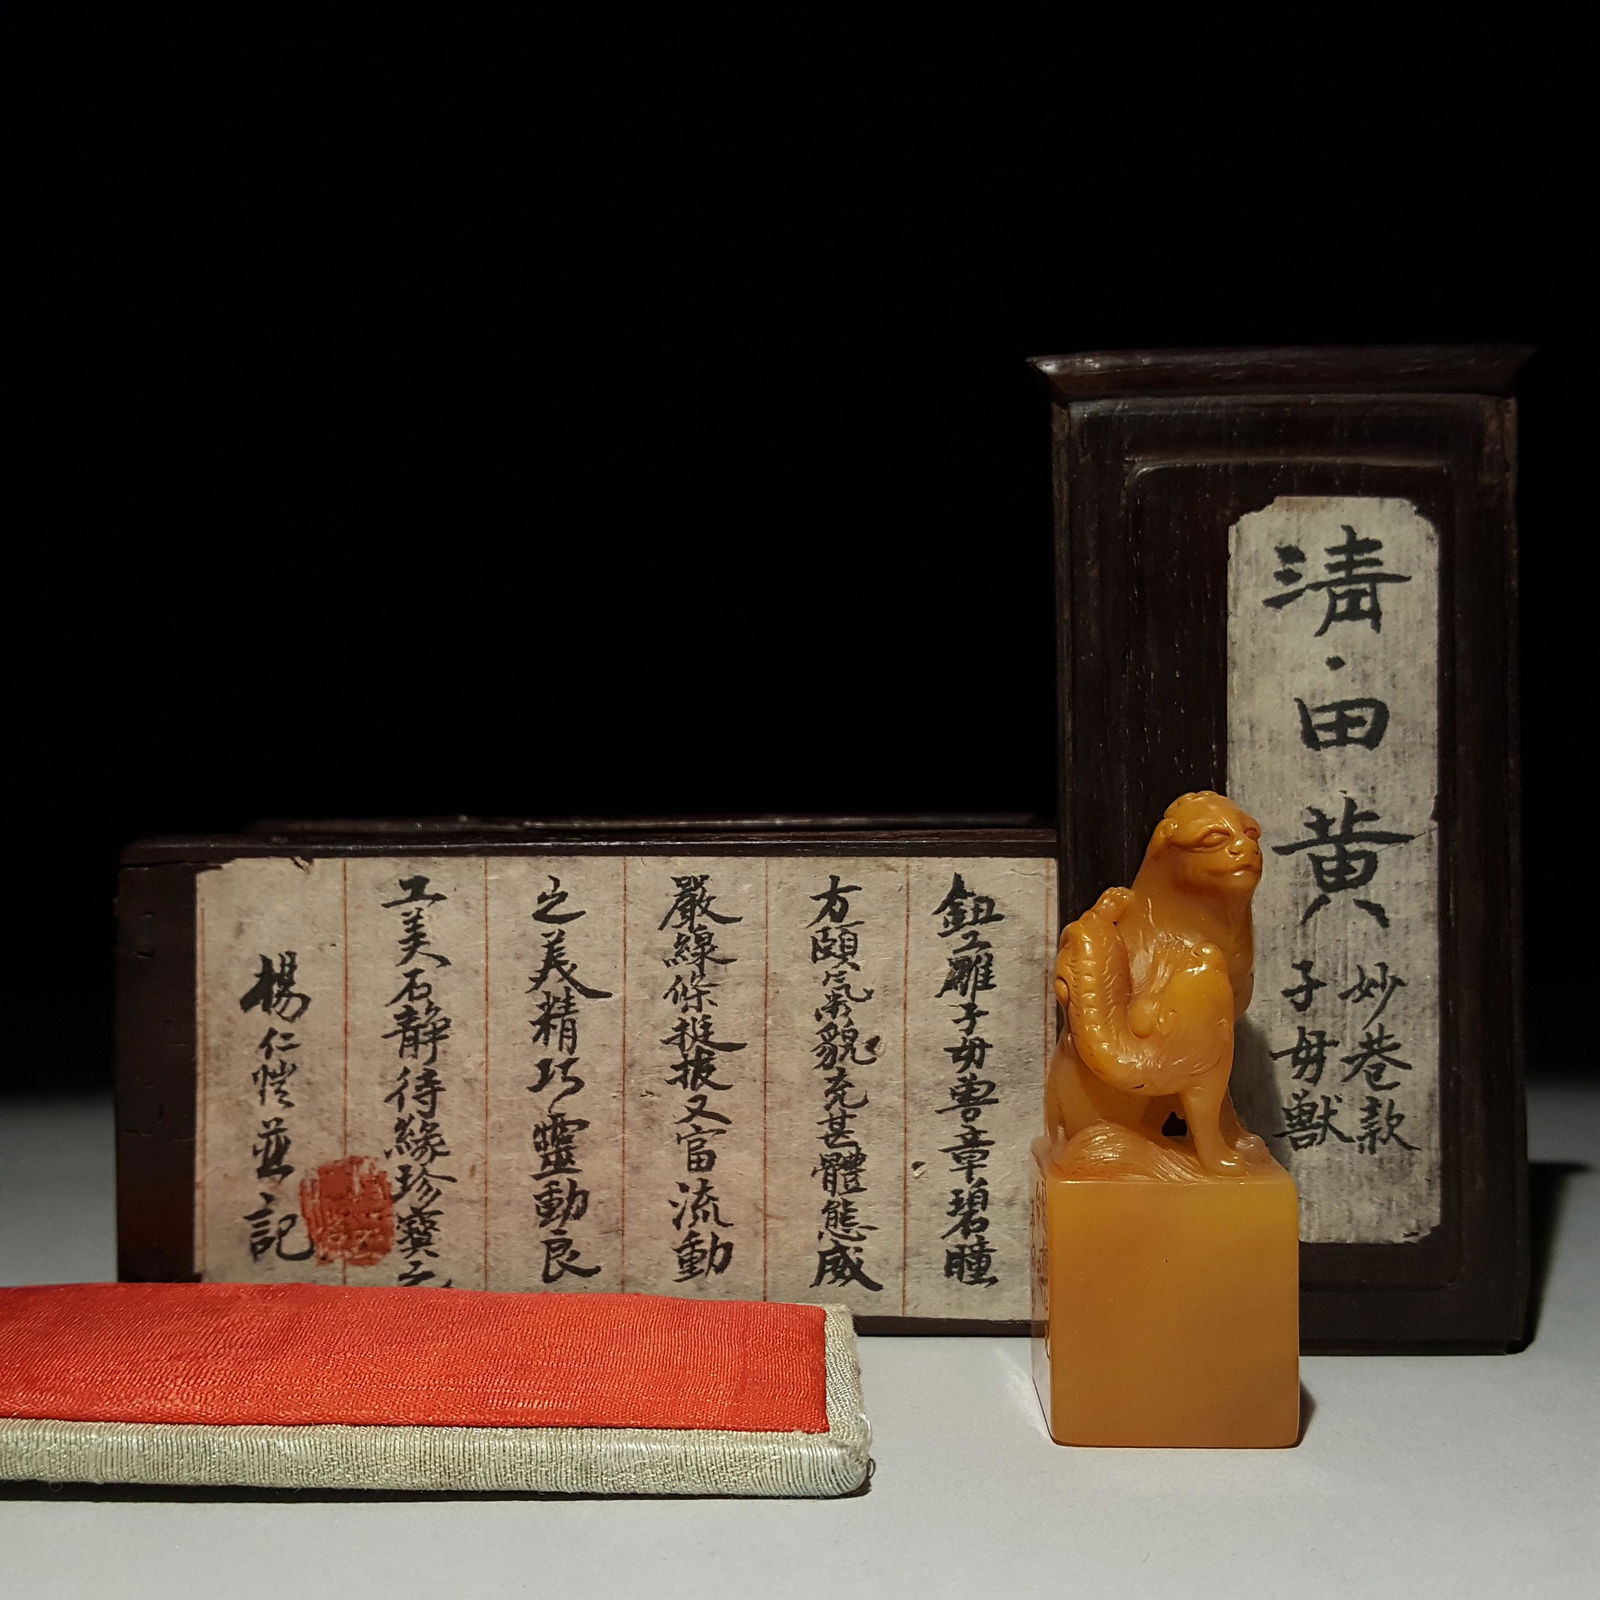 清·田黄
妙巷款
子母獸
鈕工雕子母兽章碧瞳
方頤氣貌充甚體態威
嚴線條挺拔又富流動
之美精巧靈動良
工美石静待緣珍寶
楊仁愷並記